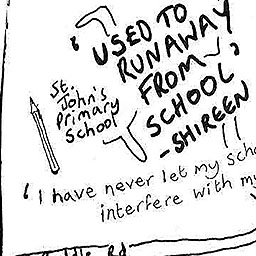 'USED TO
RUNAWAY
FROM
SCHOOL'
-SHIREEN
St.
John's
Primary
School
'I have never let my
interfere with
Rd